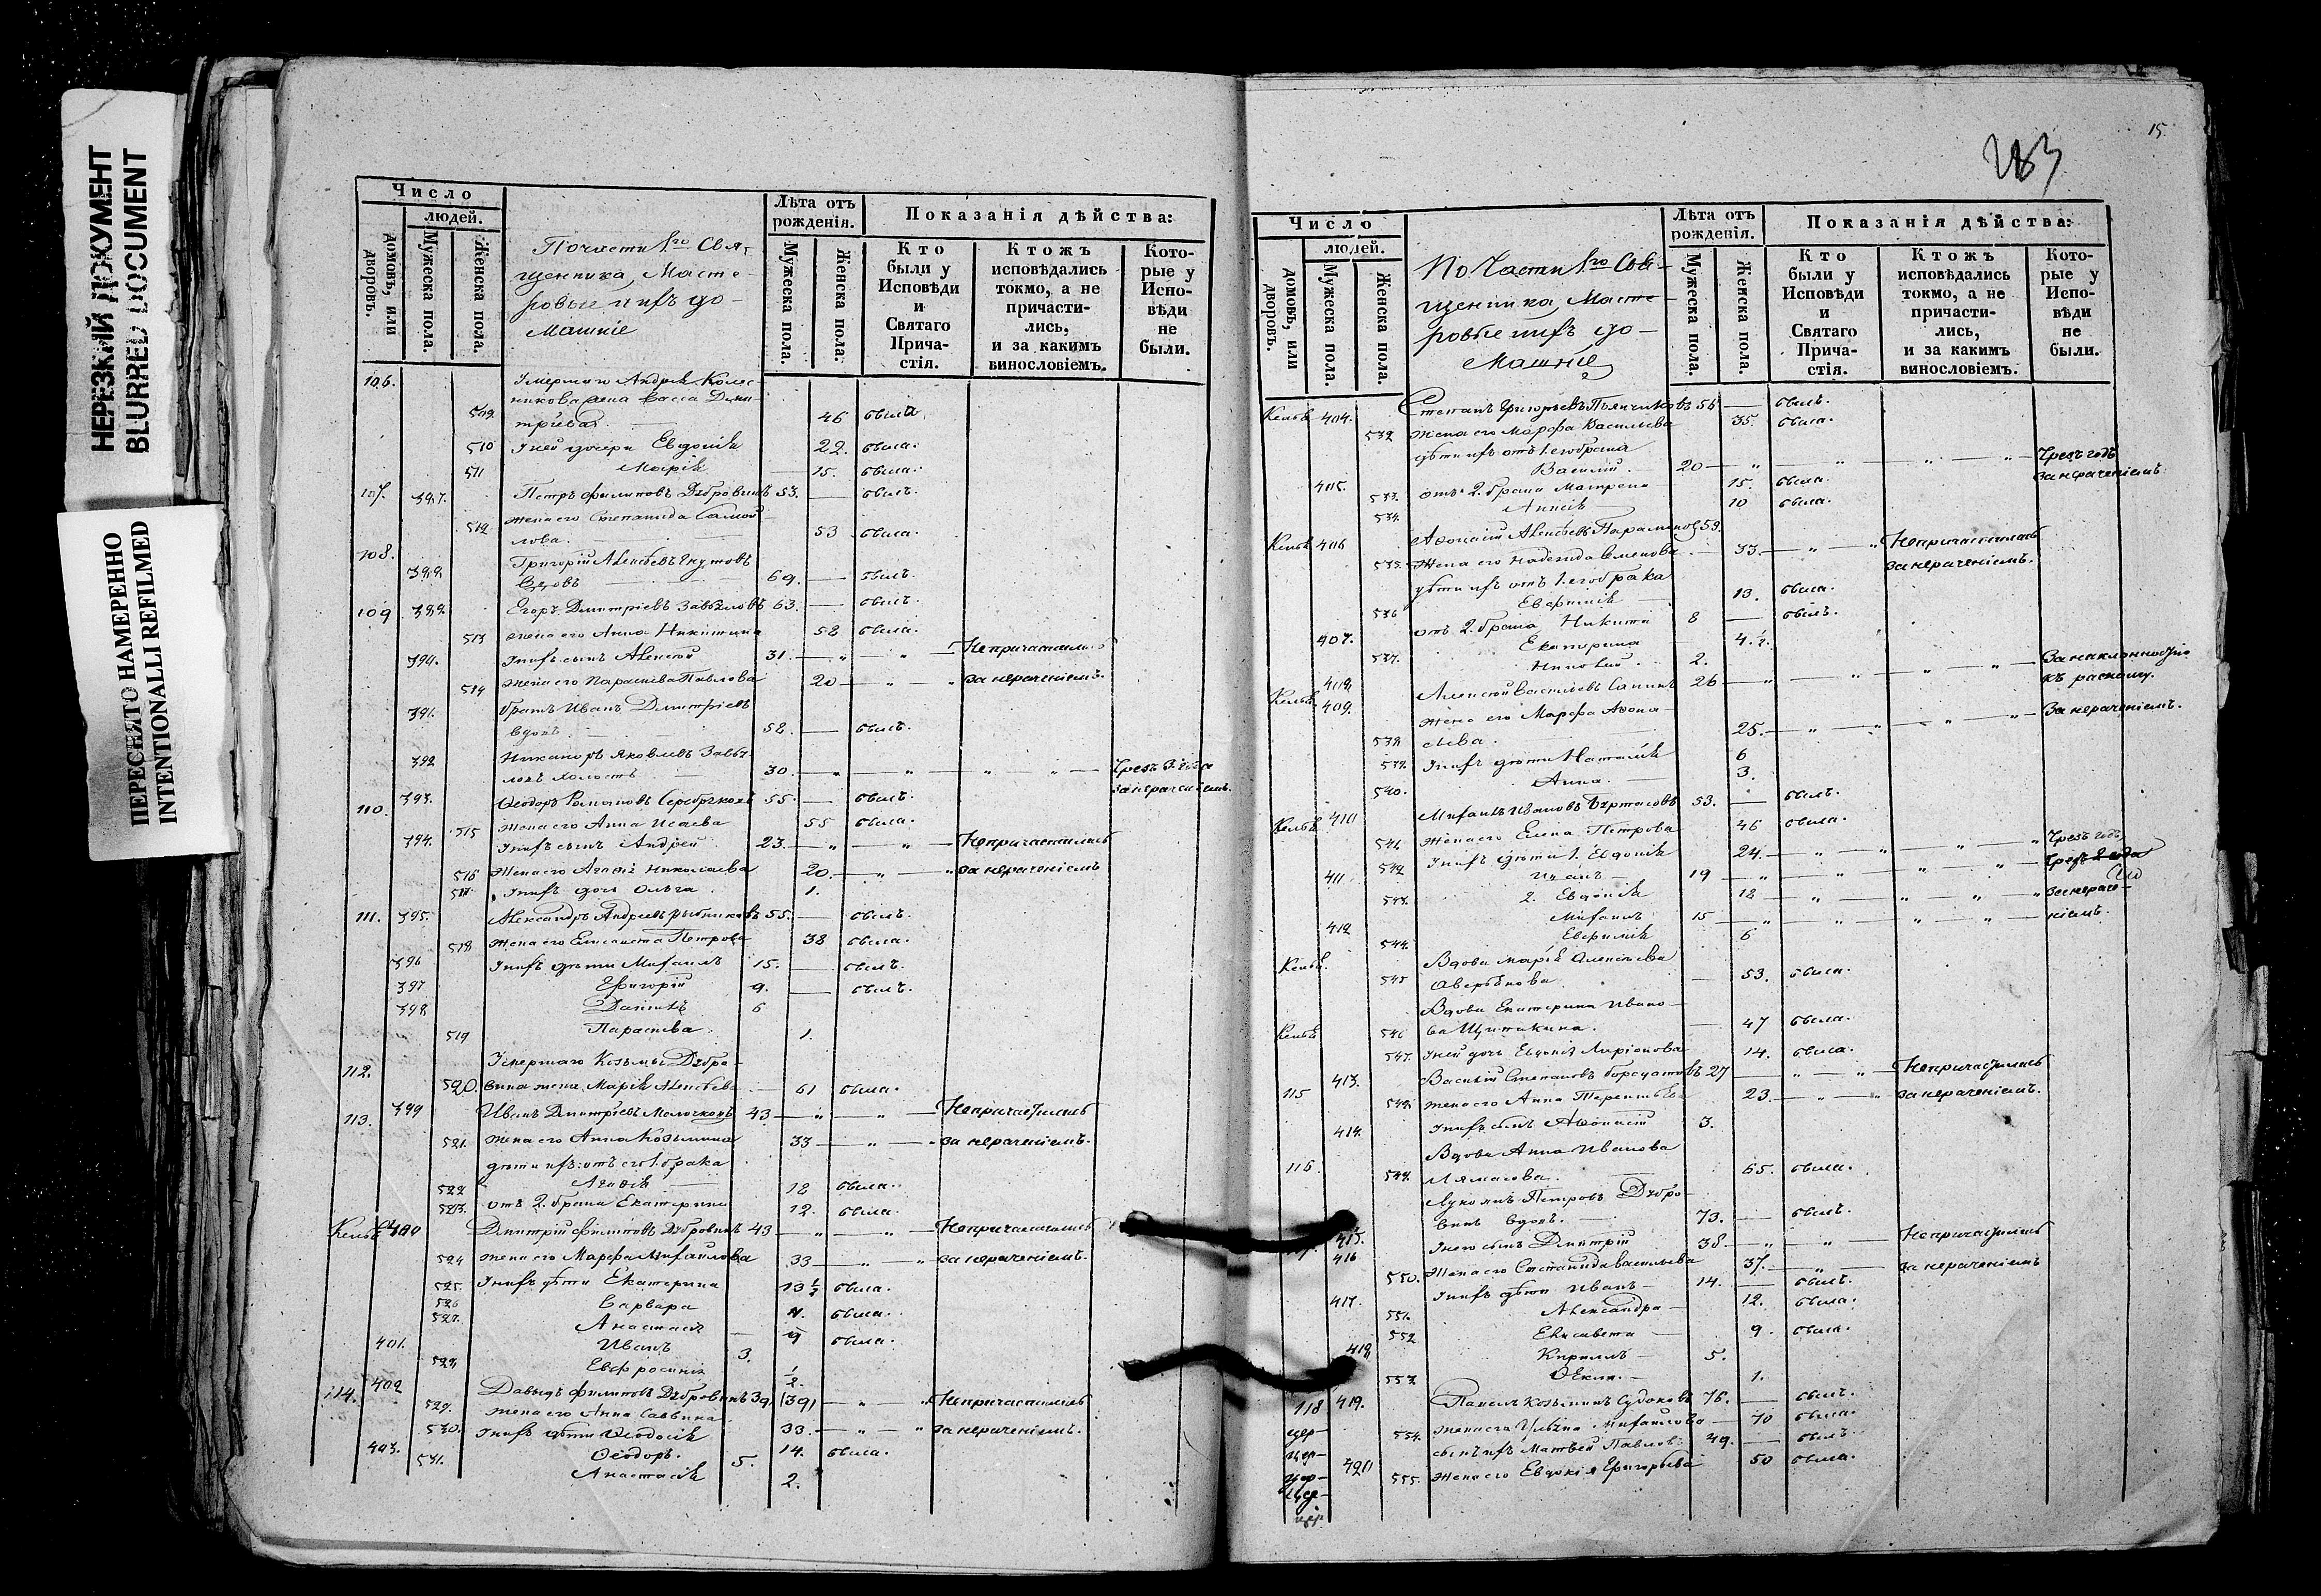 НЕРЕЗКИЙ ДОКУМЕНТ
BLURRED DOCUMENT
ПЕРЕСНЯТО НАМЕРЕННО
INTENTIONALLI REFILMED
Число
людей.
домовъ, или дворовъ.
Мужеска пола.
Женска пола.
По части 1го Свя-
щенника, Масте-
ровые и ихъ до-
машніе
Лѣта отъ рожденія.
Мужеска пола.
Женска пола.
Показанія дѣйства:
Кто были у Исповѣди и Святаго Прича- стія.
Ктожъ исповѣдались токмо, а не причасти- лись, и за какимъ винословіемъ.
Кото- рые у Испо- вѣди не были.
106. Умершаго Андрея Колес-
никова жена Васса Дми-
509. тріева 46 была
510 У ней дочери Евдокія 22. была.
511 Марія 15. была.
107. 387. Петръ Филиповъ Дубровинъ 53. — былъ.
512 жена его Степанида Самой-
лова. 53 была.
108. 388 Григорій Алексѣевъ
Вдовъ 69. — былъ.
109 389. Егоръ Дмитріевъ Завьяловъ 63. — былъ.
513 жена его Анна Никитина 58 была.
390. У нихъ сынъ Алексей 31. — „ — „ — Непричастились
514 Жена его Параскева Павлова 20 — „ — „ за нераченіемъ.
391. братъ Иванъ Дмитріевъ
вдовъ. 58. — былъ.
392 Никаноръ Яковлевъ Завья-
ловъ холостъ 30. — „ — „ — „ — „ — Чрезъ 3 года
за нераченіемъ.
110. 393. Ѳеодоръ Серебряковъ 55. — былъ.
515 Жена его Анна Исаева 55 была.
394. У нихъ сынъ Андрей 23. — „ — „ — Непричастились
516 Жена его Агафія Николаева 20. — „ — „ за нераченіемъ
517. У нихъ дочь Ольга 1.
111. 395. Александръ Андреевъ Рыбниковъ 55. — былъ.
518 Жена его Елисавета Петрова 38 была.
396 У нихъ дѣти Михаилъ 15. — былъ.
397 Григорій 9. — былъ.
398 Даніилъ 6
519 Параскева 1.
112. Умершаго Козьмы Дубро-
520. вина жена Марія Алексѣева 61 была.
113. 399 Иванъ Дмитріевъ Молочковъ 43 — „ — „ — Непричастились
521. Жена его Анна Козьмина 33 — „ — „ за нераченіемъ.
дѣти ихъ: отъ его 1. брака
522 Агафія 18 была.
523. отъ 2. брака Екатерина 12. была.
Кельѣ 400 Дмитрій Филиповъ Дубровинъ 43 — „ — „ — Непричастились
524 Жена его Марфа Михайлова 33 — „ — „ за нераченіемъ.
525. У нихъ дѣти Екатерина 13 ½ была.
526 Варвара 11. была.
527. Анастасія 9 была.
401. Иванъ 3.
528. Евфросинія ½.
114. 402 Давыдъ Филиповъ Дубровинъ 39 (39) — „ — „ Непричастились
529. Жена его Анна Саввина 33. — „ — „ за нераченіемъ.
530. У нихъ дѣти Ѳеодосія 14. была.
403. Ѳеодоръ. 5.
531. Анастасія 2.
15.
283
Число
людей.
домовъ, или дворовъ.
Мужеска пола.
Женска пола.
По Части 1го Свя-
щенника, Масте-
ровые и ихъ до-
машніе
Лѣта отъ рожденія.
Мужеска пола.
Женска пола.
Показанія дѣйства:
Кто были у Исповѣди и Святаго Прича- стія.
Ктожъ исповѣдались токмо, а не причасти- лись, и за какимъ винословіемъ.
Кото- рые у Испо- вѣди не были.
Кельѣ 404. Степанъ Григорьевъ 56 — былъ.
532 Жена его Марфа Васильева 35. была.
дѣти ихъ отъ 1. его брака
405. Василій 20 — „ — „ — „ — „ — Чрезъ годъ
за нераченіемъ.
533. отъ 2. брака Матрена 15. была.
534. Аннія 10 была.
Кельѣ 406 Аѳонасій Алексѣевъ Парамонов 59.
535. Жена его Надежда Семенова 33. — „ — „ Непричастилась
за нераченіемъ.
дѣти ихъ отъ 1. его брака
536 Евфимія 13. была.
407. отъ 2. брака Никита 8 — былъ.
537. Екатерина 4. ½.
408 Николай 2.
Кельѣ 409. Алексей Васильевъ Сапинъ 26 — „ — „ — „ — „ — За наклонностію
къ расколу.
538 Жена его Марфа Аѳона-
сьева. 25. — „ — „ — „ — „ — За нераченіемъ.
539. У нихъ дѣти Наталія 6
540. Анна. 3.
Кельѣ 410 Михаилъ Ивановъ Буртасовъ 53. — былъ.
541. Жена его Елена Петрова 46 была.
542 У нихъ дѣти 1. Евдокія 24. — „ — „ — „ — „ Чрезъ годъ
411 Иванъ 19 — „ — „ — „ — „ — Чрезъ 2 года
543. 2. Евдокія 18 — „ — „ — „ — „ за нераче-
412 Михаилъ 15 — „ — „ — „ — „ — ніемъ.
544. Евфимія 6
Кельѣ. Вдова Марія Алексѣева
545 Аверьянова. 53. была.
Вдова Екатерина Ивано-
Кельѣ 546 ва Щипакина. 47 была.
547. У ней дочь Евдокія Ларіонова 14. была.
115 413. Василій Степановъ Борсуновъ 27 — „ — „ — Непричастились
548. Жена его Анна Терентьева 23. — „ — „ за нераченіемъ.
414. У нихъ сынъ Аѳонасій 3.
116. Вдова Анна Иванова
549. Лямасова. 65. была.
415. Лукоянъ Петровъ Дубро-
винъ вдовъ. 73. — былъ.
416 У него сынъ Дмитрій 38. — „ — „ — Непричастились
550. Жена его Степанида Васильева 37. — „ — за нераченіемъ
417. У нихъ дѣти Иванъ 14. — былъ.
551. Александра 12. была.
552 Елисавета 9. была.
418 Кириллъ 5.
553. Ѳекла. 1.
118 419. Павелъ Козьминъ Судоковъ 76. — былъ.
554. Жена его Михайлова 70 была.
420 сынъ ихъ Матвей Павлов 49. — былъ.
555. Жена его Евдокія Григорьева 50 была.
цер-
цер-
цер-
цер-
цер